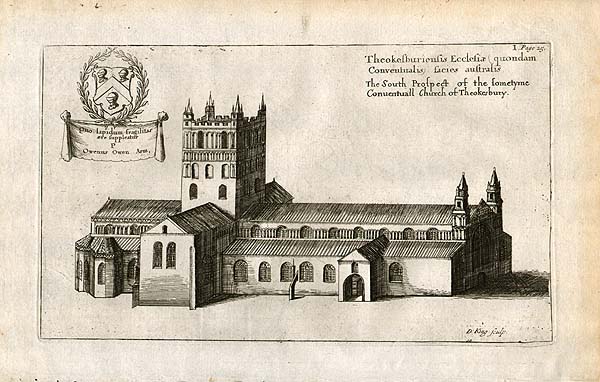 1. Page 25.
Theokesburiensis Ecclesiæ (quondam
Conventualis) facies australis
The South Prospect of the sometyme
Conventuall Church of Theokesbury.
Quo lapidum fragilitas
ære suppleatur
P
Owenus Owen Arm.
D. King sculp.